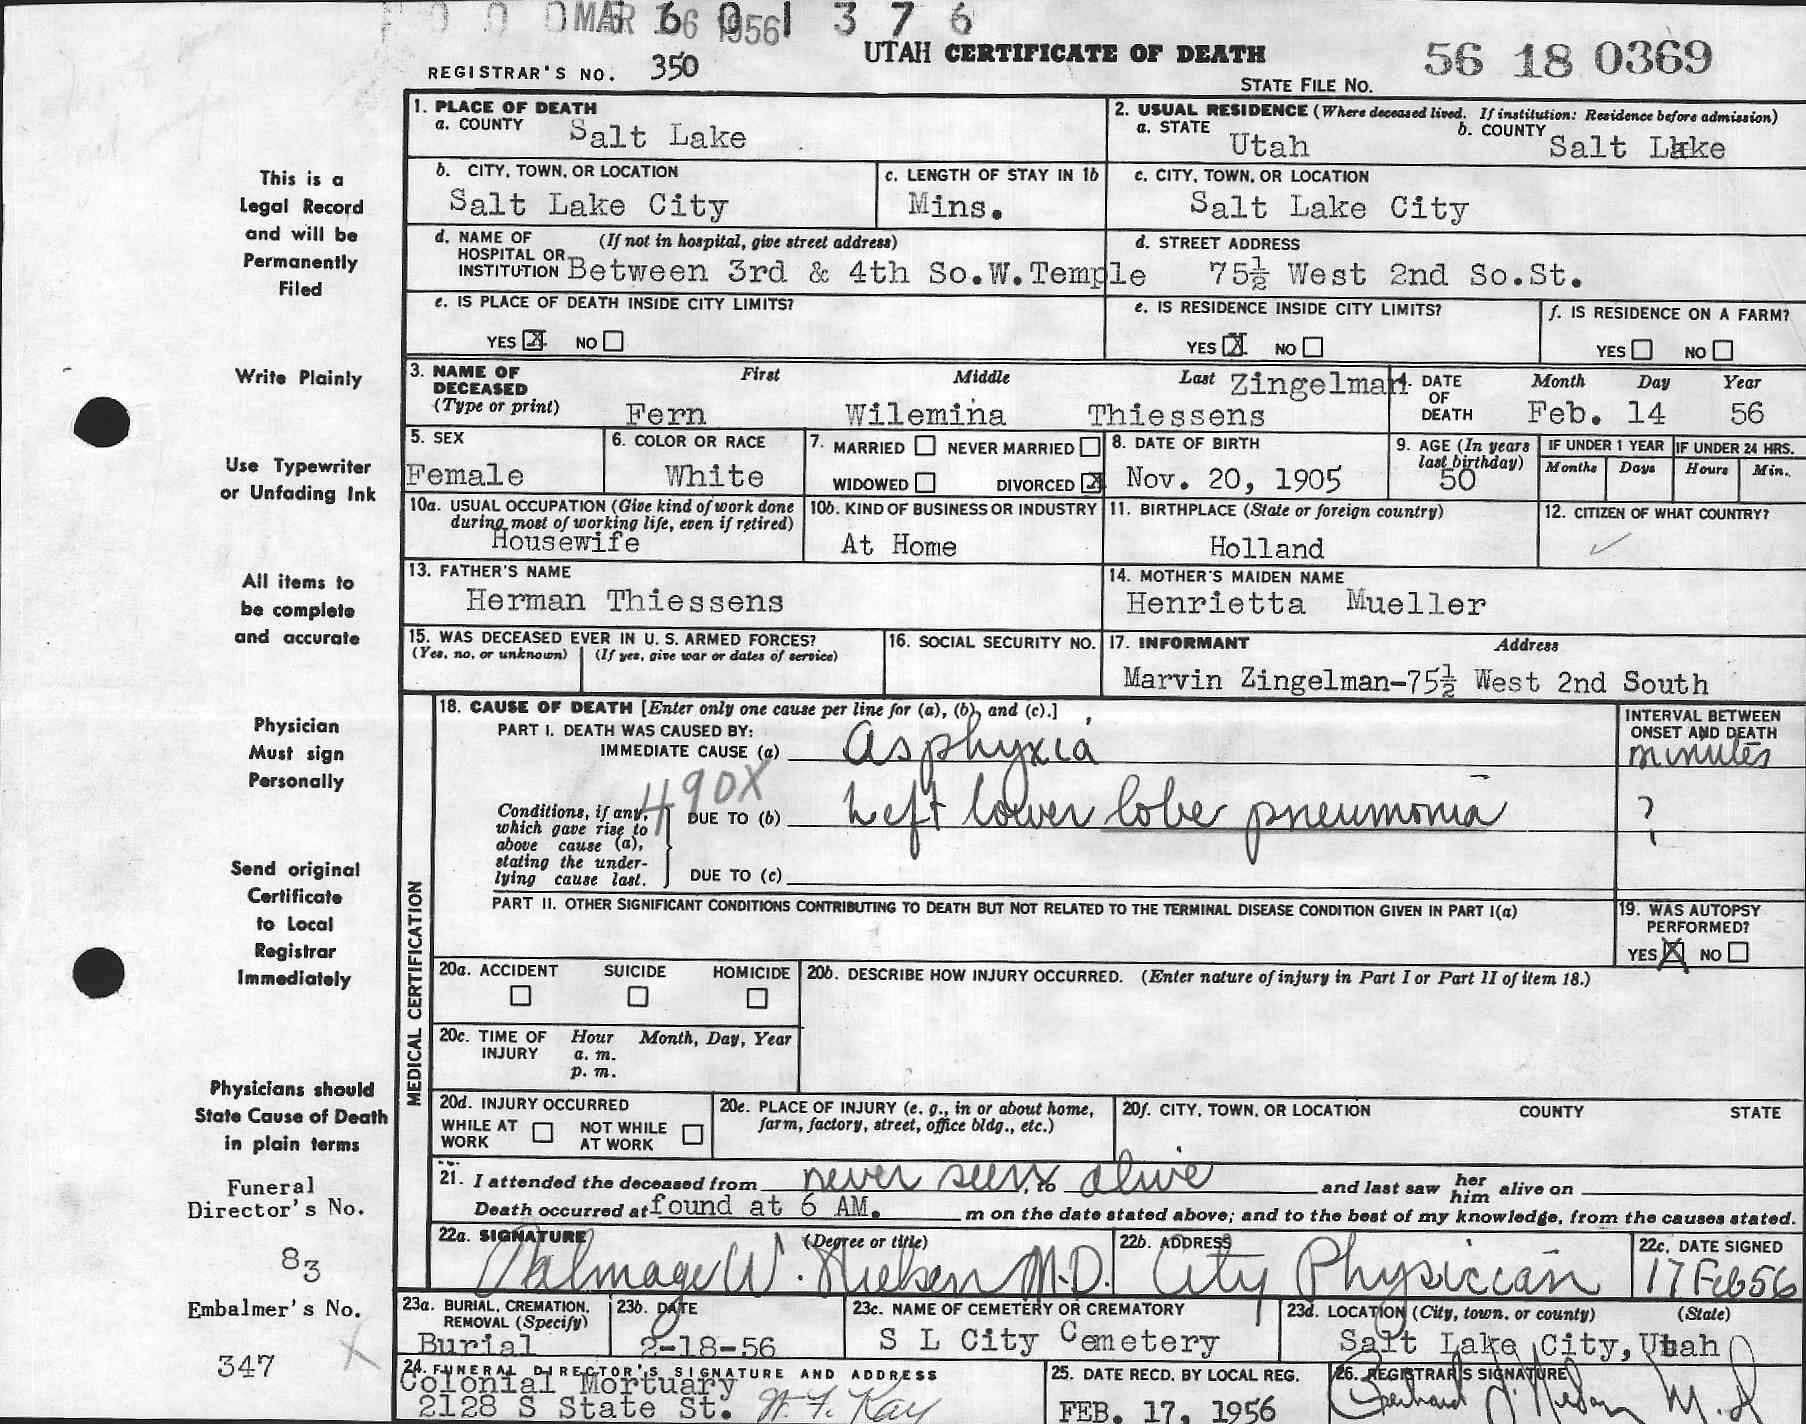 MAR 16 1956
6 0 1 3 7 6
UTAH CERTIFICATE OF DEATH
REGISTRAR'S NO. 350
STATE FILE NO. 56 18 0369
This is a
Legal Record
and will be
Permanently
Filed
Write Plainly
Use Typewriter
or Unfading Ink
All items to
be complete
and accurate
Physician
Must sign
Personally
Send original
Certificate
to Local
Registrar
Immediately
Physicians should
State Cause of Death
in plain terms
Funeral
Director's No.
83
Embalmer's No.
347
1. PLACE OF DEATH
a. COUNTY Salt Lake
2. USUAL RESIDENCE (Where deceased lived. If institution: Residence before admission)
a. STATE Utah b. COUNTY Salt Lake
b. CITY, TOWN, OR LOCATION
Salt Lake City
c. LENGTH OF STAY IN 1b
Mins.
c. CITY, TOWN, OR LOCATION
Salt Lake City
d. NAME OF HOSPITAL OR INSTITUTION (If not in hospital, give street address)
Between 3rd & 4th So.W.Temple
d. STREET ADDRESS
75½ West 2nd So.St.
e. IS PLACE OF DEATH INSIDE CITY LIMITS?
YES X NO
e. IS RESIDENCE INSIDE CITY LIMITS?
YES X NO
f. IS RESIDENCE ON A FARM?
YES NO
3. NAME OF DECEASED (Type or print)
First Middle Last Zingelman
Fern Wilemina Thiessens
4. DATE OF DEATH Month Day Year
Feb. 14 56
5. SEX
Female
6. COLOR OR RACE
White
7. MARRIED NEVER MARRIED
WIDOWED DIVORCED X
8. DATE OF BIRTH
Nov. 20, 1905
9. AGE (In years last birthday)
50
IF UNDER 1 YEAR
Months Days
IF UNDER 24 HRS.
Hours Min.
10a. USUAL OCCUPATION (Give kind of work done
during most of working life, even if retired)
Housewife
10b. KIND OF BUSINESS OR INDUSTRY
At Home
11. BIRTHPLACE (State or foreign country)
Holland
12. CITIZEN OF WHAT COUNTRY?
13. FATHER'S NAME
Herman Thiessens
14. MOTHER'S MAIDEN NAME
Henrietta Mueller
15. WAS DECEASED EVER IN U. S. ARMED FORCES?
(Yes, no, or unknown) (If yes, give war or dates of service)
16. SOCIAL SECURITY NO.
17. INFORMANT Address
Marvin Zingelman-75½ West 2nd South
MEDICAL CERTIFICATION
18. CAUSE OF DEATH [Enter only one cause per line for (a), (b), and (c).]
PART I. DEATH WAS CAUSED BY:
IMMEDIATE CAUSE (a) Asphyxia
INTERVAL BETWEEN
ONSET AND DEATH
minutes
490X
Conditions, if any,
which gave rise to
above cause (a),
stating the under-
lying cause last.
DUE TO (b) Left lower lobe pneumonia ?
DUE TO (c)
PART II. OTHER SIGNIFICANT CONDITIONS CONTRIBUTING TO DEATH BUT NOT RELATED TO THE TERMINAL DISEASE CONDITION GIVEN IN PART I(a)
19. WAS AUTOPSY
PERFORMED?
YES X NO
20a. ACCIDENT SUICIDE HOMICIDE
20b. DESCRIBE HOW INJURY OCCURRED. (Enter nature of injury in Part I or Part II of item 18.)
20c. TIME OF INJURY Hour Month, Day, Year
a. m.
p. m.
20d. INJURY OCCURRED
WHILE AT WORK NOT WHILE AT WORK
20e. PLACE OF INJURY (e. g., in or about home,
farm, factory, street, office bldg., etc.)
20f. CITY, TOWN, OR LOCATION COUNTY STATE
21. I attended the deceased from never seen, to alive and last saw her him alive on
Death occurred at found at 6 AM. m on the date stated above; and to the best of my knowledge, from the causes stated.
22a. SIGNATURE (Degree or title)
Valmage W. Nielsen M.D.
22b. ADDRESS
City Physician
22c. DATE SIGNED
17 Feb 56
23a. BURIAL, CREMATION,
REMOVAL (Specify)
Burial
23b. DATE
2-18-56
23c. NAME OF CEMETERY OR CREMATORY
S L City Cemetery
23d. LOCATION (City, town, or county) (State)
Salt Lake City, Utah
24. FUNERAL DIRECTOR'S SIGNATURE AND ADDRESS
Colonial Mortuary
2128 S State St. W. F. Kay
25. DATE RECD. BY LOCAL REG.
FEB. 17, 1956
26. REGISTRAR'S SIGNATURE